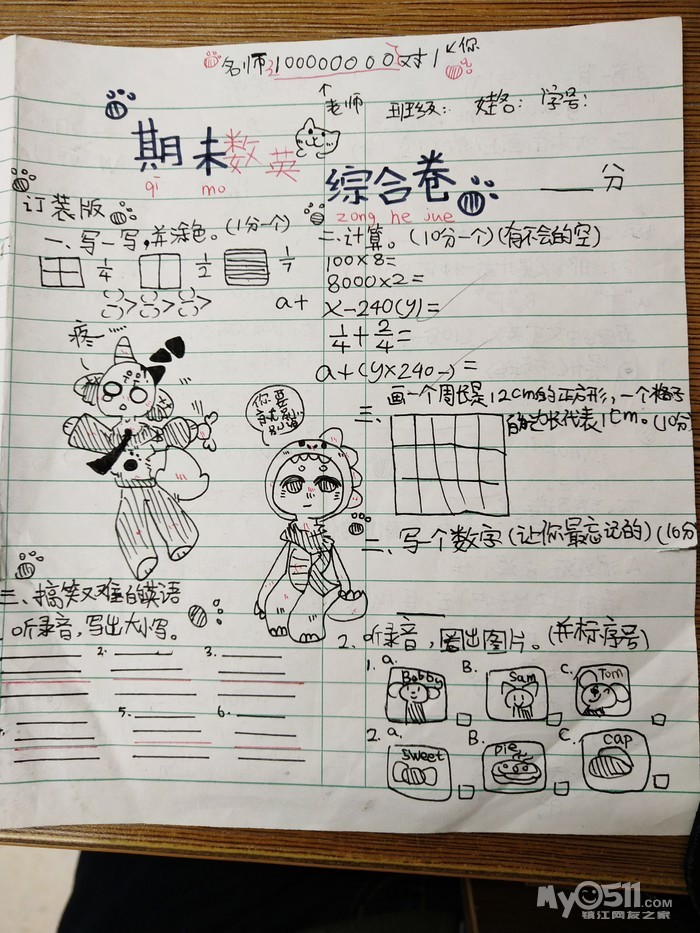 名师1000000000对1 ↙你
↑老师
班级： 姓名： 学号：
期末数英
qi mo
综合卷
zong he jue
___分
订装版
一、写一写，并涂色。(1分一个)
1/4 1/2 1/7
>>> a+
疼…
二、计算。(10分一个)(有不会的空)
100×8=
8000×2=
x-240(y)=
1/4+2/4=
a+(y×240-)=
三、画一个周长是12cm的正方形，一个格子
的边长代表1cm。(10分)
你要
二、写一个数字(让你最忘记的)(10分
三、搞笑又难的英语
听录音，写出大小写。
2. 3.
5. 6.
2. 听录音，圈出图片。(并标序号)
1. a. B. C.
Bobby Sam Tom
2. a. B. C.
sweet pie cap
My0511.com
镇江网友之家